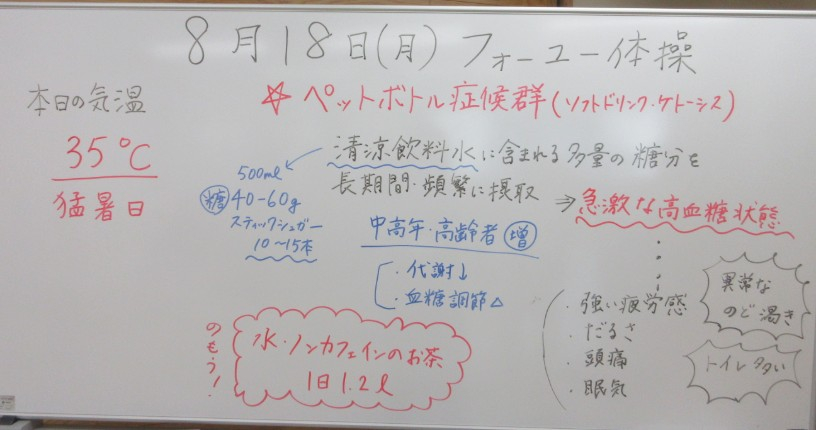 8月18日(月) フォーユー体操
本日の気温
35℃
猛暑日
☆ ペットボトル症候群(ソフトドリンク・ケトーシス)
清涼飲料水に含まれる多量の糖分を
長期間・頻繁に摂取
⇒急激な高血糖状態
500ml
糖 40-60g
スティックシュガー
10〜15本
中高年・高齢者 増
・代謝↓
・血糖調節△
・強い疲労感
・だるさ
・頭痛
・眠気
異常な
のど渇き
トイレ多い
水・ノンカフェインのお茶
1日1.2ℓ
のもう!